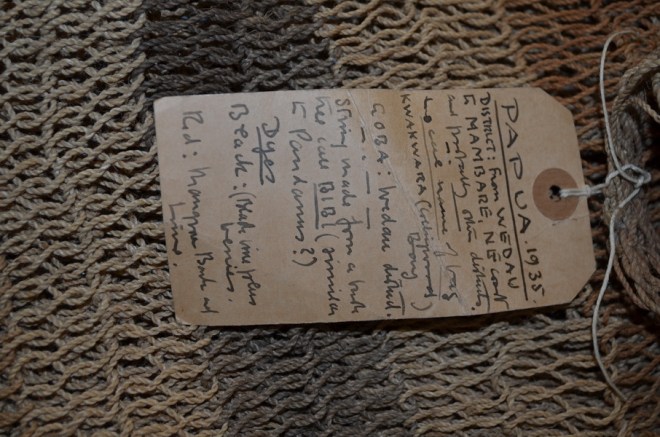 PAPUA. 1935
DISTRICT: From WEDAU
to MAMBARE, N.E coast
and probably other districts.
KWAKWARA (
name of bag
GOBA: Wedau district.
String made from a bush
tree called BIBI (similar
to Pandanus?)
Dyes
Black: (
berries.
Red: Mangrove Bark and
Lime.